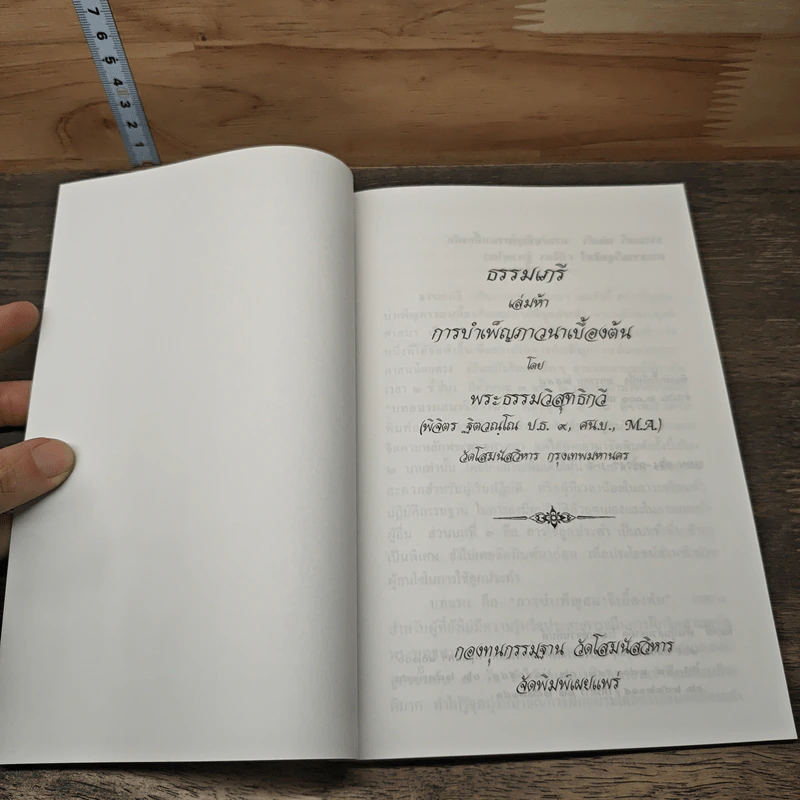 7 6 5 4 3 2 1
ธรรมเภรี
เล่มห้า
การบำเพ็ญภาวนาเบื้องต้น
โดย
พระธรรมวิสุทธิกวี
(พิจิตร ฐิตวณฺโณ ป.ธ. ๙, ศน.บ., M.A.)
วัดโสมนัสวิหาร กรุงเทพมหานคร
กองทุนกรรมฐาน วัดโสมนัสวิหาร
จัดพิมพ์เผยแพร่